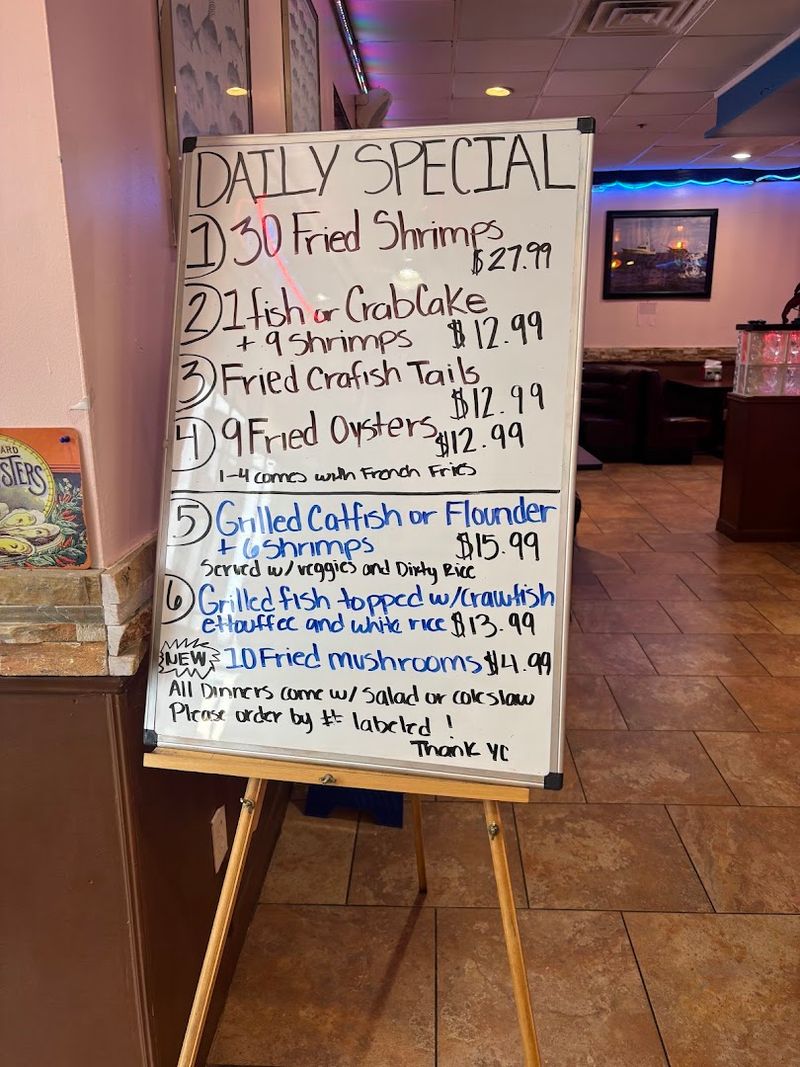 DAILY SPECIAL
1) 30 Fried Shrimps
$27.99
2) 1 fish or CrabCake
+ 9 Shrimps $12.99
3) Fried Crafish Tails
$12.99
4) 9 Fried Oysters $12.99
1-4 comes with French Fries
5) Grilled Catfish or Flounder
+ 6 Shrimps $15.99
Served w/ veggies and Dirty Rice
6) Grilled fish topped w/crawfish
ettouffee and white rice $13.99
NEW 10 Fried mushrooms $4.99
All Dinners come w/ Salad or coleslaw
Please order by # labeled !
Thank YC
STERS